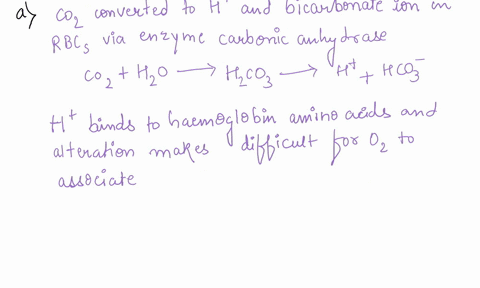 a) CO₂ converted to H⁺ and bicarbonate ion in
RBCs via enzyme carbonic anhydrase
CO₂ + H₂O ⟶ H₂CO₃ ⟶ H⁺ + HCO₃⁻
H⁺ binds to haemoglobin amino acids and
alteration makes difficult for O₂ to
associate